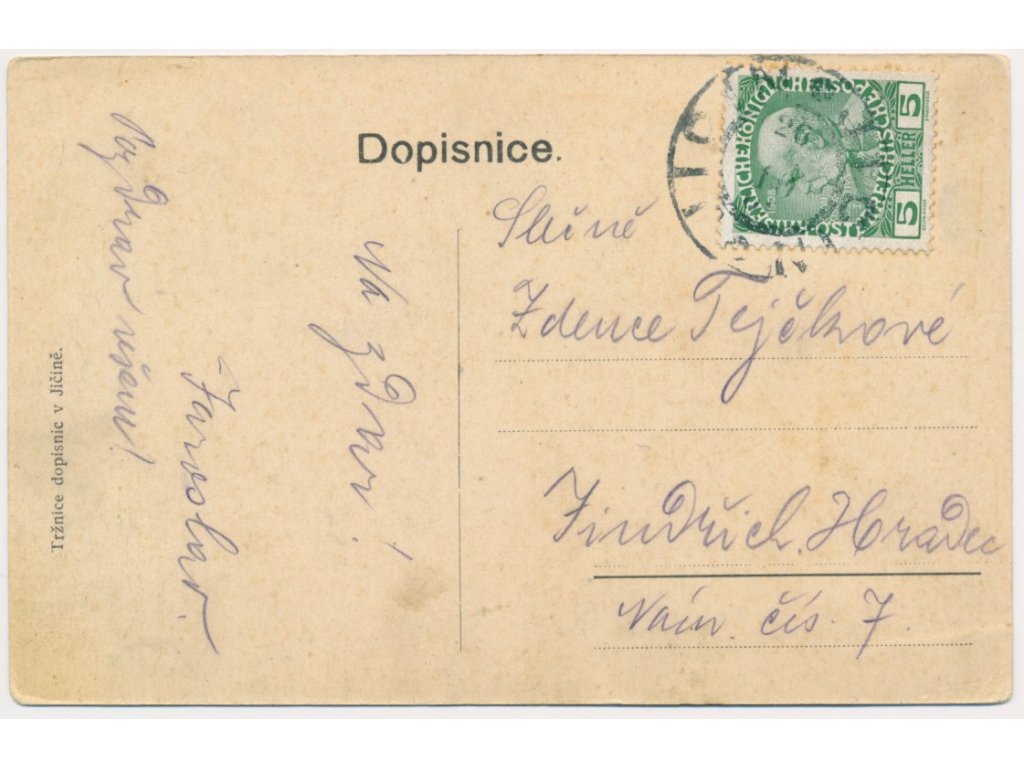 Dopisnice.
Na zdar!
Jaroslav.
Pozdrav všem!
Tržnice dopisnic v Jičíně.
Slečně
Zdence Tejčkové
Jindřich. Hradec
Nám. čís. 7.
KAISERLICHE KÖNIGLICHE OESTERREICHISCHE POST
5 HELLER 5